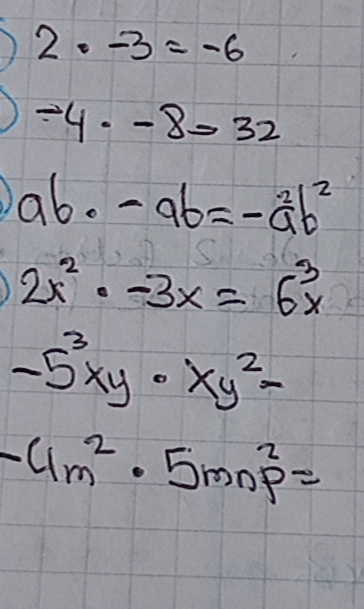 2 · -3 = -6
-4 · -8 = 32
ab · -ab = -a²b²
2x² · -3x = 6x³
-5x³y · xy² =
-4m² · 5mnp² =